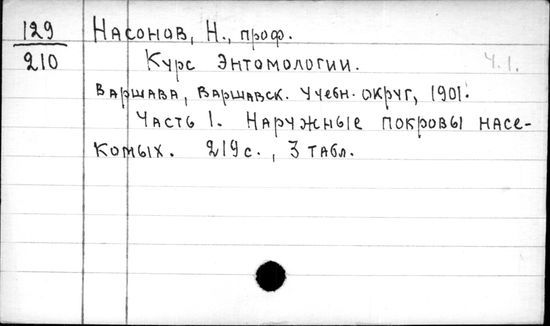 129 Насонов, Н., проф.
210 Курс Энтомологии. Ч.1.
Варшава, Варшавск. Учебн. округ, 1901.
Часть 1. Наружные покровы насе-
комых. 219 с., 3 табл.